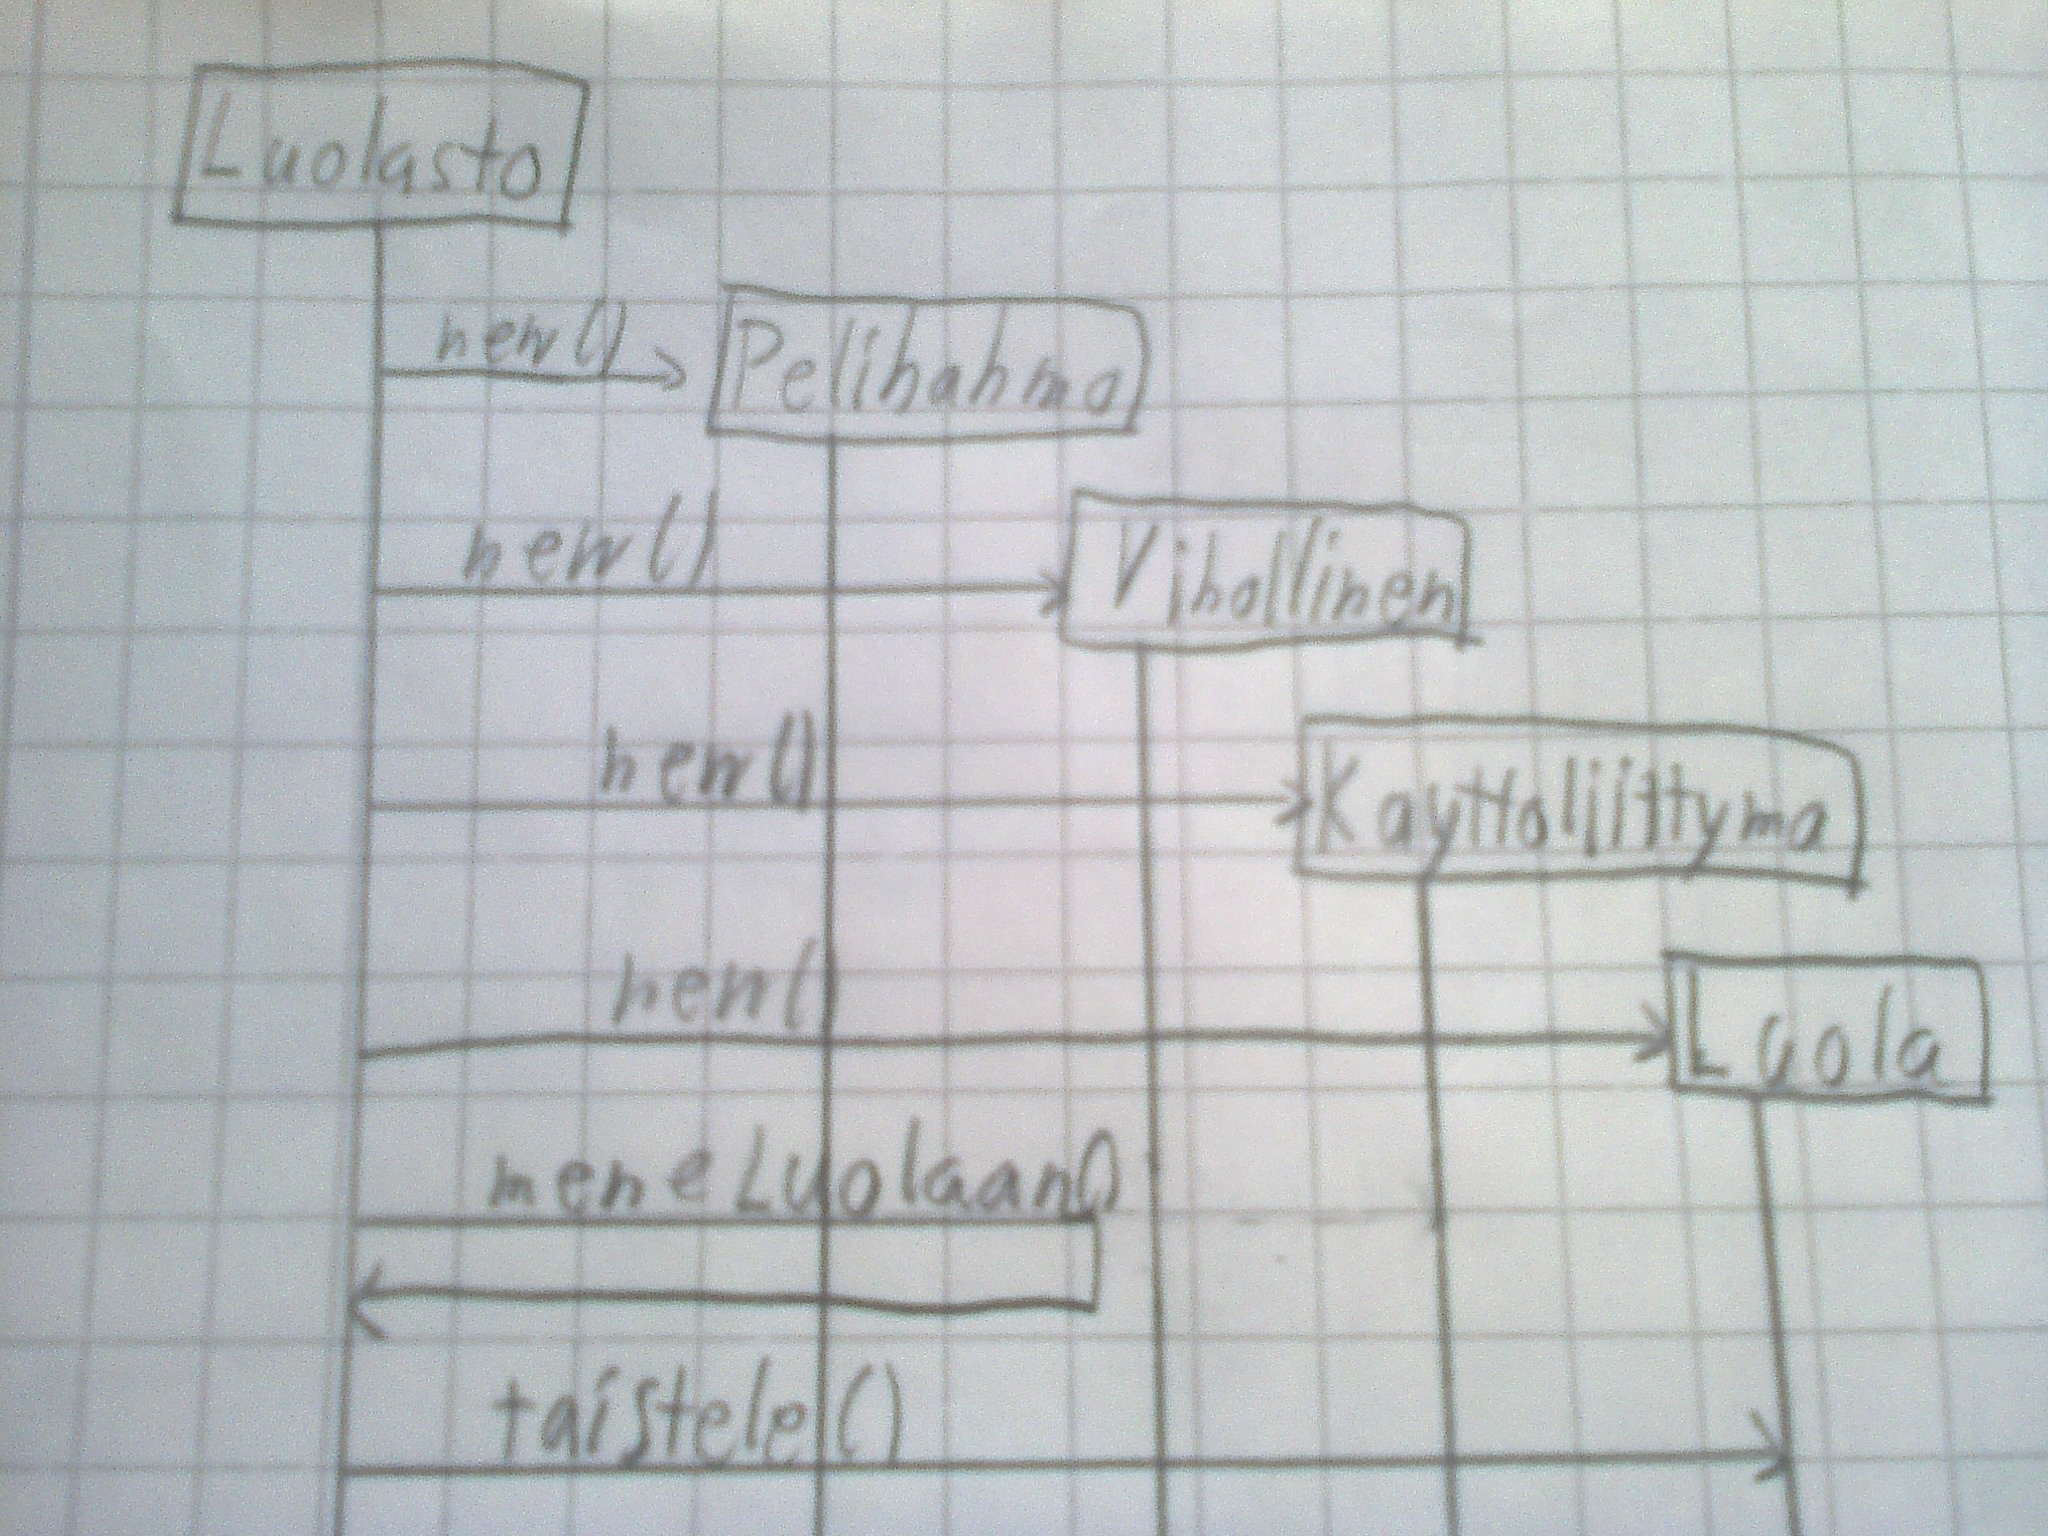 Luolasto
new()
Pelihahmo
new()
Vihollinen
new()
Kayttoliittyma
new()
Luola
meneLuolaan()
taistele()